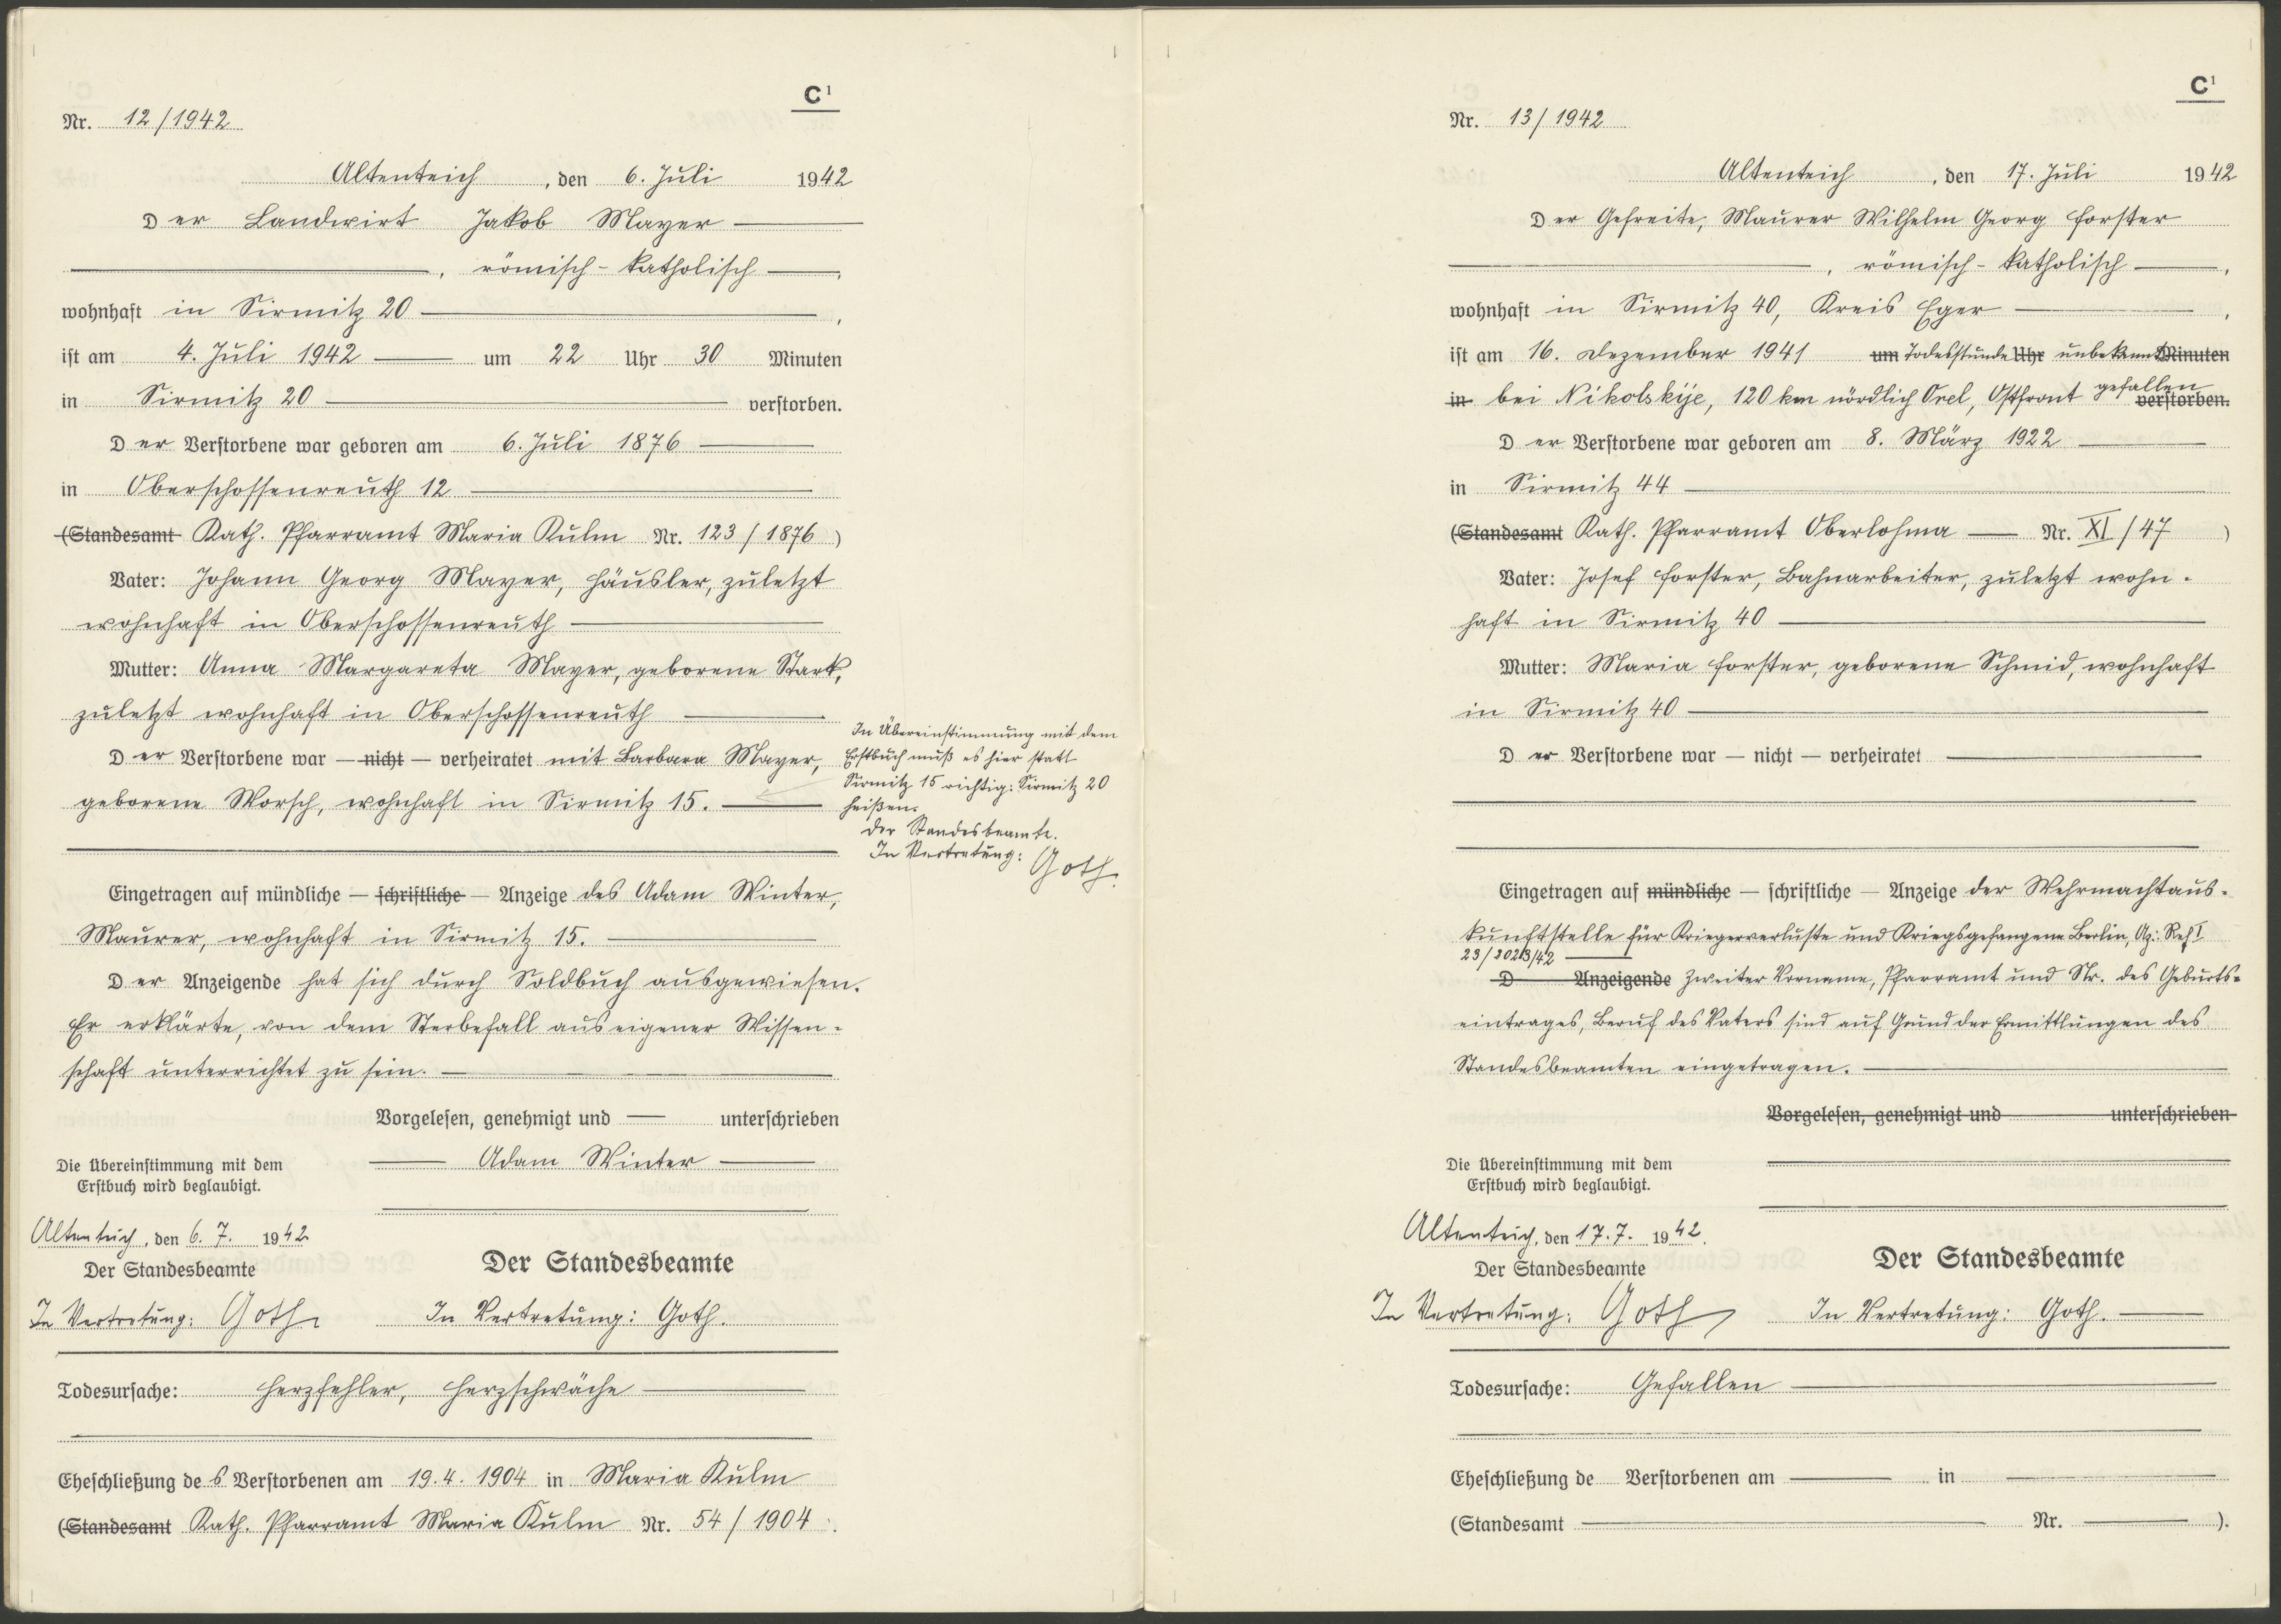 C¹
Nr. 12/1942
Altenteich, den 6. Juli 1942
Der Landwirt Jakob Mayer
, römisch-katholisch,
wohnhaft in Sirmitz 20,
ist am 4. Juli 1942 um 22 Uhr 30 Minuten
in Sirmitz 20 verstorben.
Der Verstorbene war geboren am 6. Juli 1876
in Oberschossenreuth 12
(Standesamt Kath. Pfarramt Maria Kulm Nr. 123/1876)
Vater: Johann Georg Mayer, Häusler, zuletzt
wohnhaft in Oberschossenreuth
Mutter: Anna Margareta Mayer, geborene Stark,
zuletzt wohnhaft in Oberschossenreuth
Der Verstorbene war — nicht — verheiratet mit Barbara Mayer,
geborene Worsch, wohnhaft in Sirmitz 15.
In Übereinstimmung mit dem
Erstbuch muß es hier statt
Sirmitz 15 richtig: Sirmitz 20
heißen.
Der Standesbeamte.
In Vertretung: Goth.
Eingetragen auf mündliche — schriftliche — Anzeige des Adam Winter,
Maurer, wohnhaft in Sirmitz 15.
Der Anzeigende hat sich durch Soldbuch ausgewiesen.
Er erklärte, von dem Sterbefall aus eigener Wissen-
schaft unterrichtet zu sein.
Vorgelesen, genehmigt und — unterschrieben
Adam Winter
Die Übereinstimmung mit dem
Erstbuch wird beglaubigt.
Altenteich, den 6. 7. 1942.
Der Standesbeamte
Der Standesbeamte
In Vertretung: Goth.
In Vertretung: Goth.
Todesursache: Herzfehler, Herzschwäche
Eheschließung des Verstorbenen am 19.4.1904 in Maria Kulm
(Standesamt Kath. Pfarramt Maria Kulm Nr. 54/1904).
C¹
Nr. 13/1942
Altenteich, den 17. Juli 1942
Der Gefreite, Maurer Wilhelm Georg Forster
, römisch-katholisch,
wohnhaft in Sirmitz 40, Kreis Eger,
ist am 16. Dezember 1941 um Todesstunde Uhr unbekannt Minuten
in bei Nikolskije, 120 km nördlich Orel, Ostfront gefallen verstorben.
Der Verstorbene war geboren am 8. März 1922
in Sirmitz 44
(Standesamt Kath. Pfarramt Oberlohma Nr. XI/47)
Vater: Josef Forster, Bahnarbeiter, zuletzt wohn-
haft in Sirmitz 40
Mutter: Maria Forster, geborene Schmid, wohnhaft
in Sirmitz 40
Der Verstorbene war — nicht — verheiratet
Eingetragen auf mündliche — schriftliche — Anzeige der Wehrmachtaus-
kunftstelle für Kriegerverluste und Kriegsgefangene Berlin, Az: Ref I
23/
D Anzeigende Zweiter Vorname, Pfarramt und Nr. des Geburts-
eintrages, Beruf des Vaters sind auf Grund der Ermittlungen des
Standesbeamten eingetragen.
Vorgelesen, genehmigt und unterschrieben
Die Übereinstimmung mit dem
Erstbuch wird beglaubigt.
Altenteich, den 17.7. 1942.
Der Standesbeamte
Der Standesbeamte
In Vertretung: Goth
In Vertretung: Goth.
Todesursache: Gefallen
Eheschließung de Verstorbenen am in
(Standesamt Nr. ).